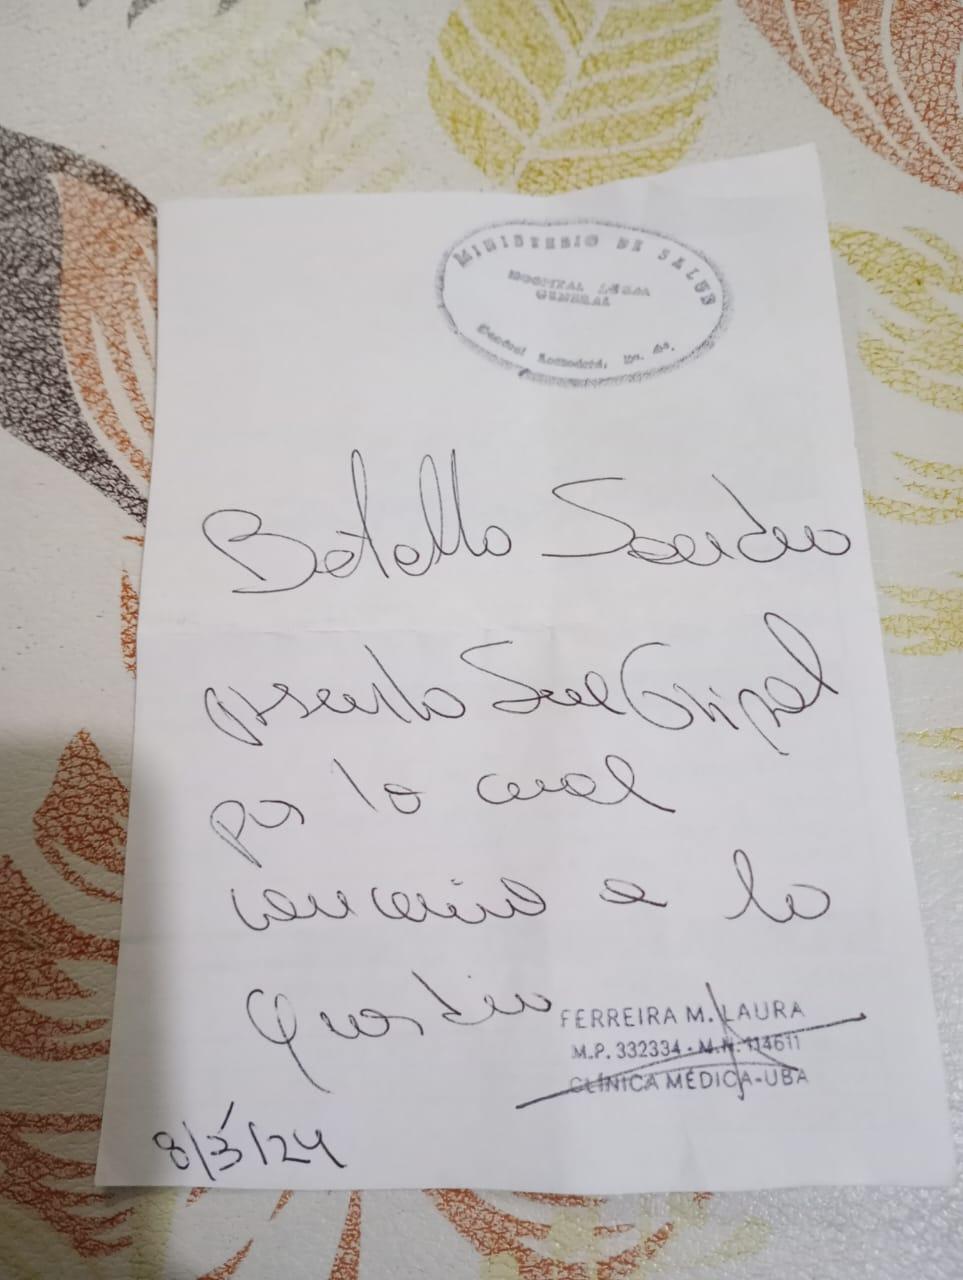 MINISTERIO DE SALUD
HOSPITAL
GENERAL
Botello Sandro
presenta Sme Gripal
por lo cual
concurrio a la
Guardia
FERREIRA M. LAURA
M.P. 332334 - M.N. 114611
CLÍNICA MÉDICA-UBA
8/3/24